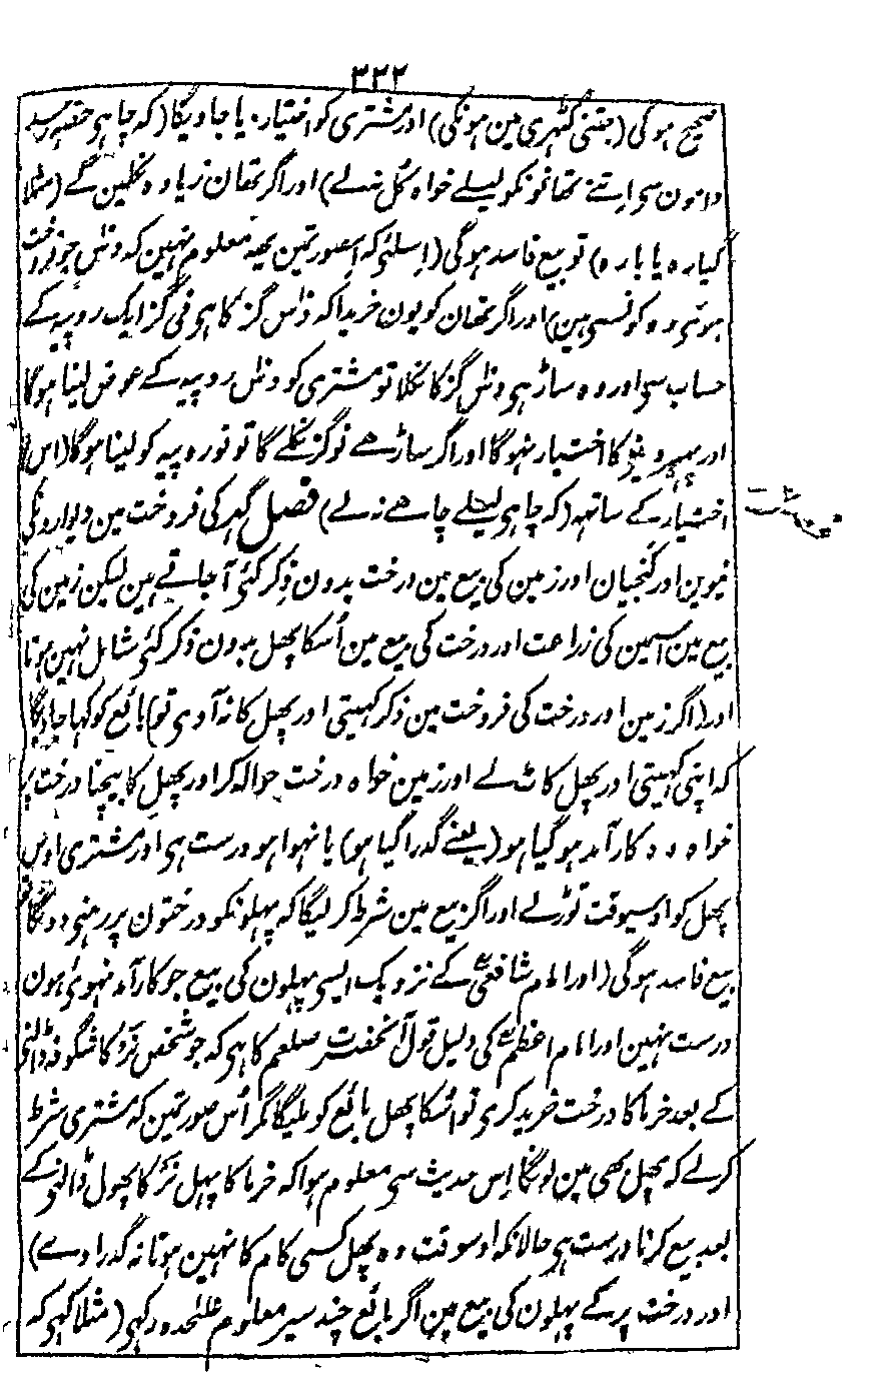 ۳۳۲
صحیح ہوگی (جتنی گٹھری مین ہونگی) اور مشتری کو اختیار دیا جاویگا (کہ چاہی حصہ رسد
دامون سی اتنے تھانونکو لیلے خواہ کل نہ لے) اور اگر تھان زیادہ نکلین گے (مثلاً
گیارہ یا بارہ) تو بیع فاسد ہوگی (اسلئی کہ اسصورتمین یہہ معلوم نہین کہ دس جو فروخت
ہوئی وہ کونسی ہین) اور اگر تھان کو یون خریدا کہ دس گز کا ہی فی گز ایک روپیہ کے
حساب سی اور وہ ساڑہی دس گز کا نکلا تو مشتری کو دس روپیہ کے عوض لینا ہوگا
اور پہیر دینے کا اختیار نہوگا اور اگر ساڑھے نو گز نکلے گا تو نو روپیہ کو لینا ہوگا (اس
اختیار کے ساتھہ (کہ چاہی لیلے چاھے نہ لے) فصل گہر کی فروخت مین دیوارونکی
نیوین اور کنجیان اور زمین کی بیع مین درخت بدون ذکر کئی آجاتے ہین لیکن زمین کی
بیع مین اسمین کی زراعت اور درخت کی بیع مین اُسکا پھل بدون ذکر کئی شامل نہین ہوتا
اور (اگر زمین اور درخت کی فروخت مین ذکر کہیتی اور پھل کا نہ آوی تو) بائع کو کہا جاویگا
کہ اپنی کہیتی اور پھل کاٹ لے اور زمین خواہ درخت حوالہ کر اور پھل کا بیچنا درخت پر
خواہ وہ کارآمد ہو گیا ہو (یعنے گدرا گیا ہو) یا نہوا ہو درست ہی اور مشتری اوس
پھل کو اوسیوقت توڑ لے اور اگر بیع مین شرط کر لیگا کہ پہلونکو درختون پر رہنی دونگا تو
بیع فاسد ہوگی (اور امام شافعیؒ کے نزدیک ایسی پہلون کی بیع جو کارآمد نہوئی ہون
درست نہین اور امام اعظمؒ کی دلیل قول آنحضرت صلعم کا ہی کہ جو شخص نر کا شگوفہ ڈالنی
کے بعد خرما کا درخت خرید کری تو اسکا پھل بائع کو ملیگا مگر اُس صورتمین کہ مشتری شرط
کر لے کہ پھل بھی مین لونگا اِس حدیث سی معلوم ہوا کہ خرما کا پہل نر کا پھول ڈالنی کے
بعد بیع کرنا درست ہی حالانکہ اوسوقت وہ پھل کسی کام کا نہین ہوتا نہ گدرا وے)
اور درخت پر کے پہلون کی بیع مین اگر بائع چند سیر معلوم علٰحدہ کرے (مثلاً کہی کہ